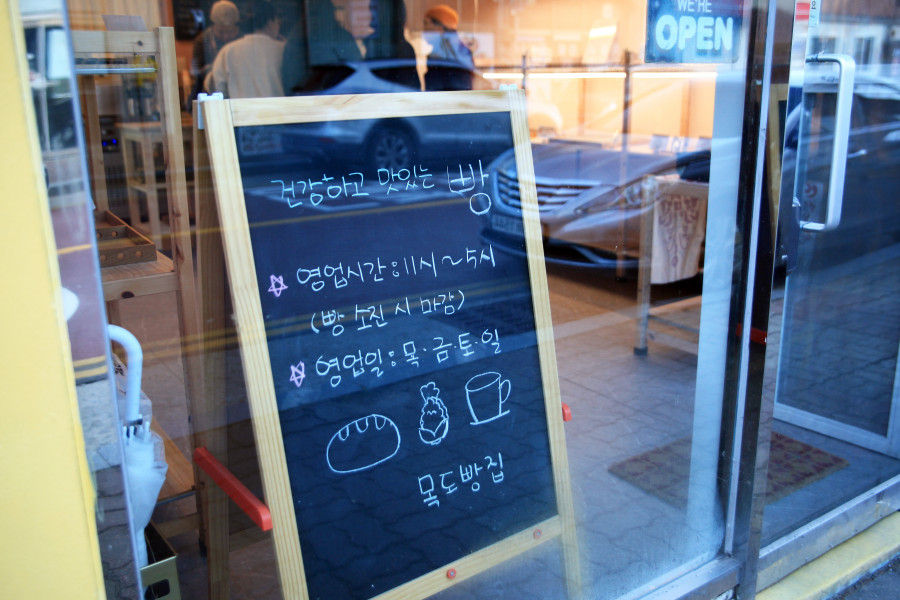 WE'RE
OPEN
건강하고 맛있는 빵
영업시간:11시~5시
(빵 소진 시 마감)
영업일:목·금·토·일
목도빵집